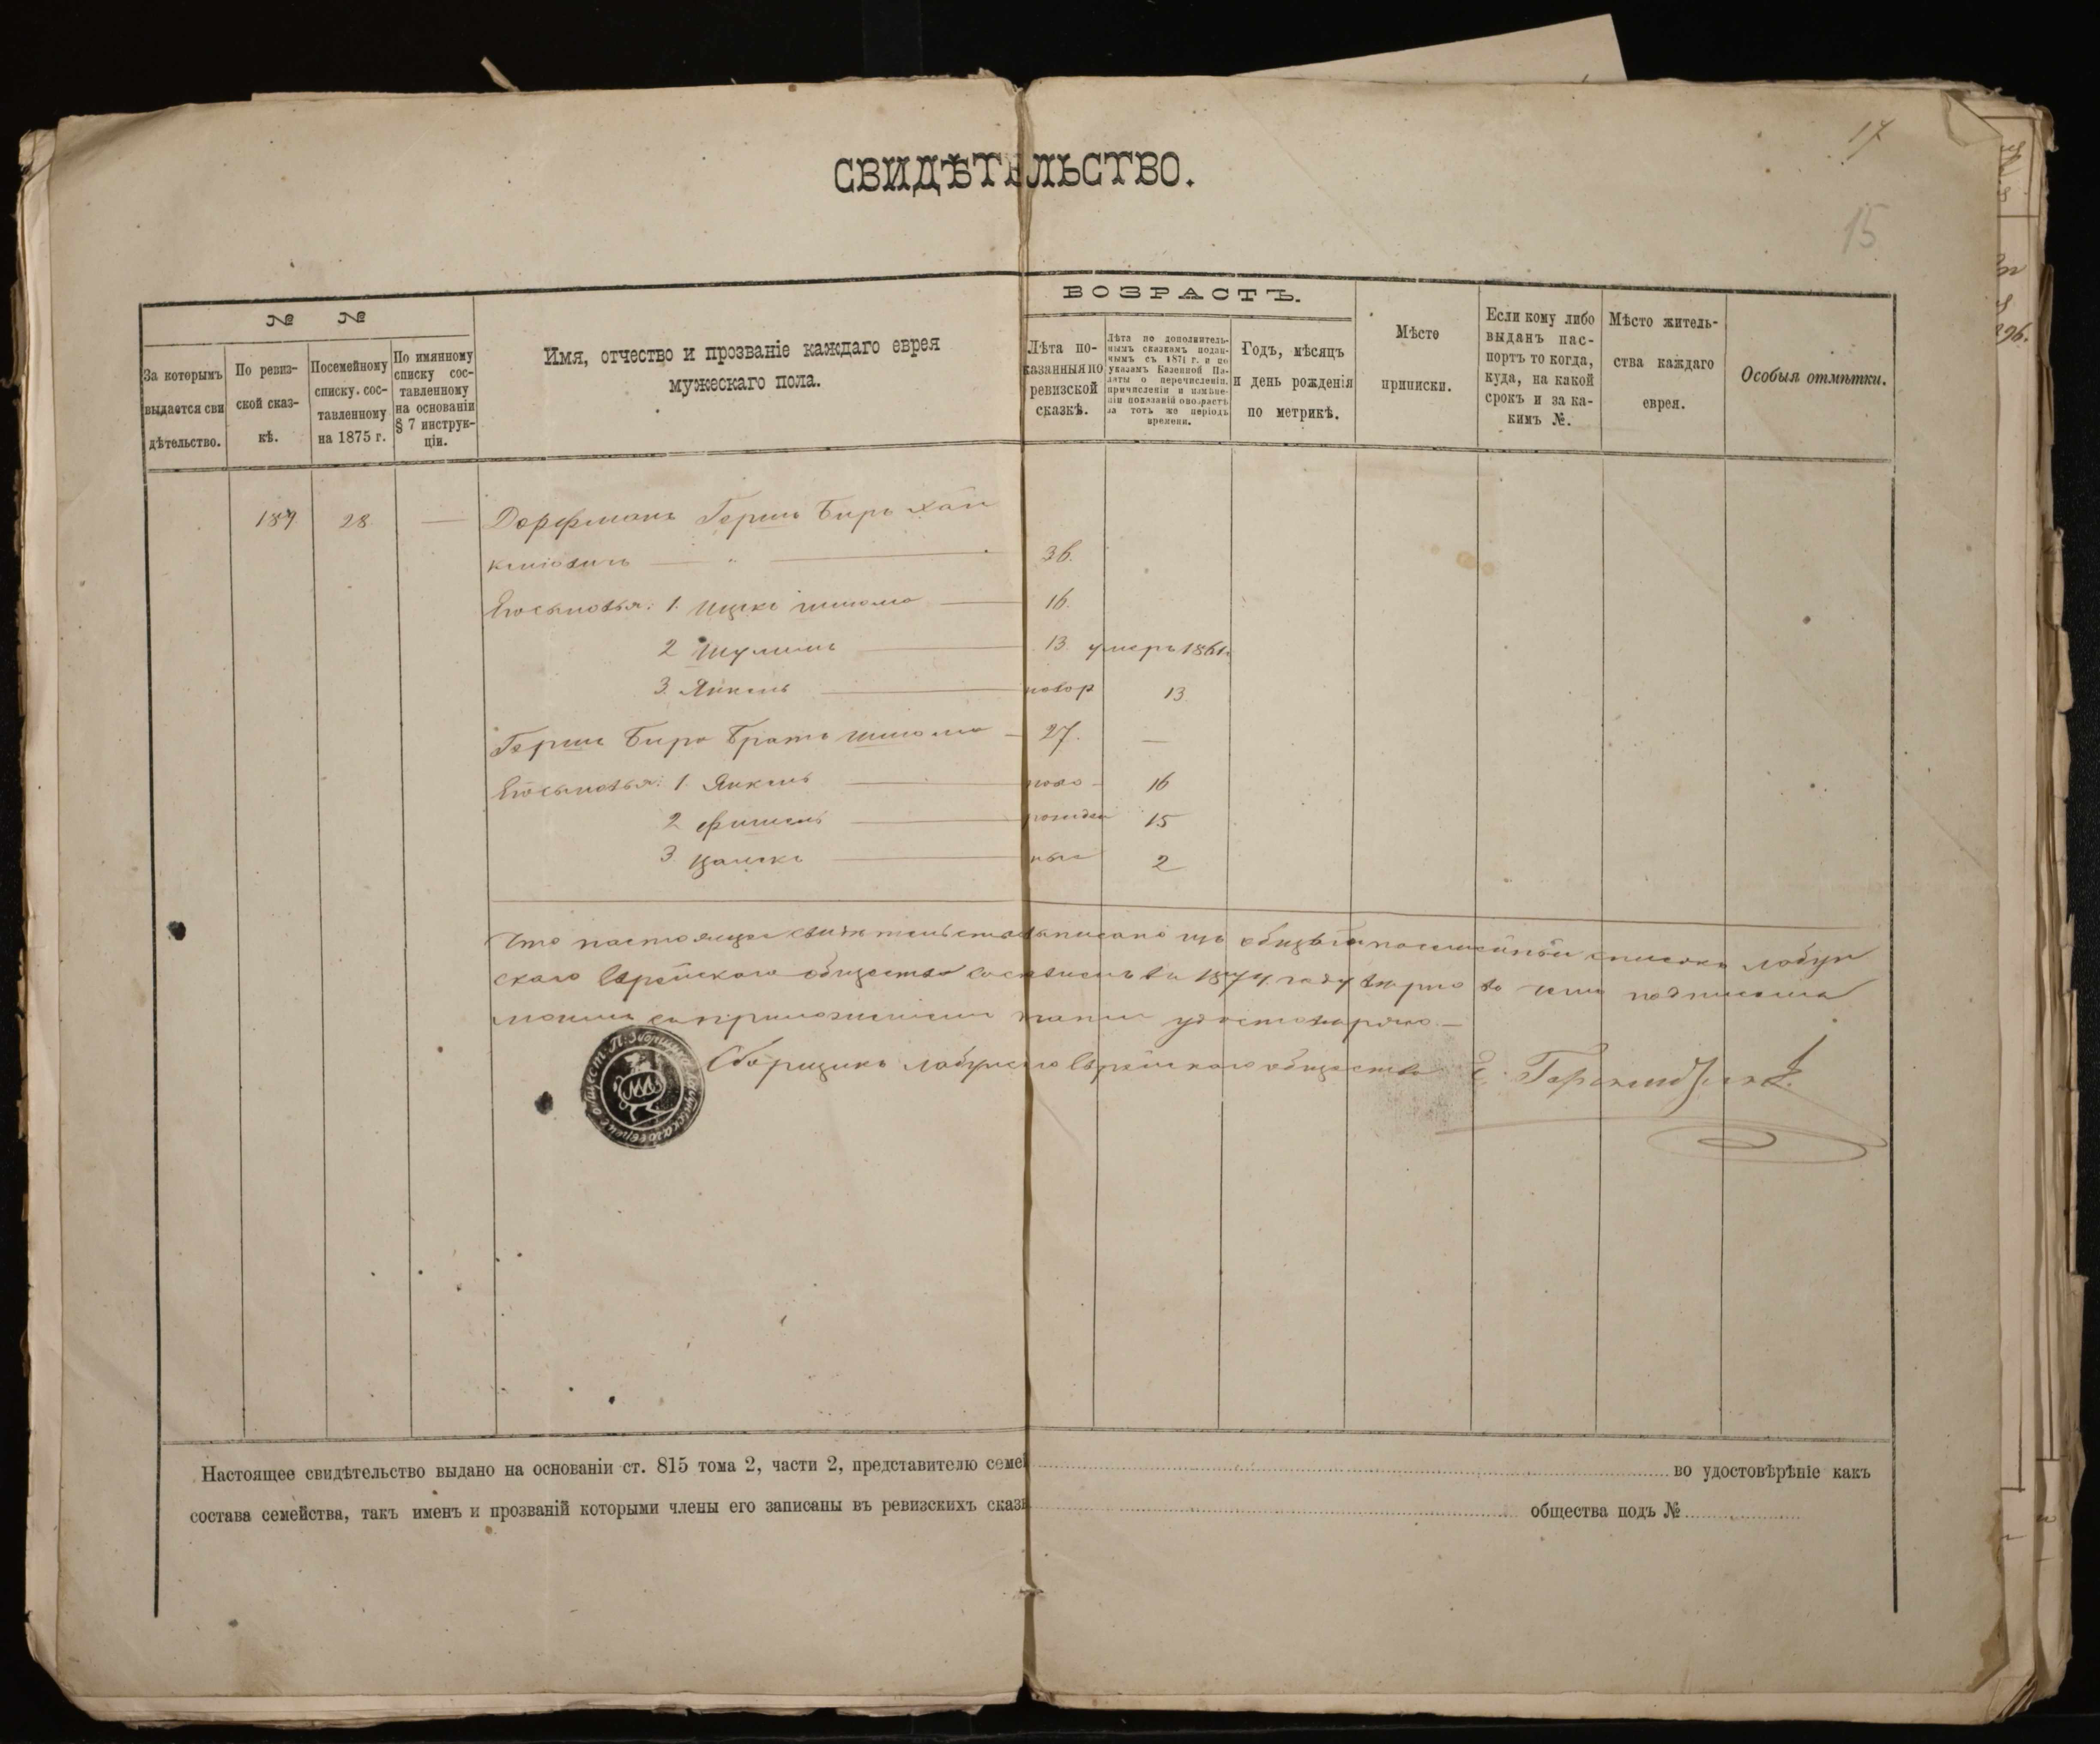 17
15
СВИДѢТЕЛЬСТВО.
№ №
За которымъ выдается сви дѣтельство.
По ревиз- ской сказ- кѣ.
Посемейному списку. сос- тавленному на 1875 г.
По имянному списку сос- тавленному на основаніи § 7 инструк- ціи.
Имя, отчество и прозваніе каждаго еврея мужескаго пола.
ВОЗРАСТЪ.
Лѣта по- казанныя по ревизской сказкѣ.
Лѣта по дополнитель- нымъ сказкамъ подан- нымъ съ 1871 г. и по указамъ Казенной Па- латы о перечисленіи, причисленіи и измѣне- ніи показаній о возрастѣ за тотъ же періодъ времени.
Годъ, мѣсяцъ и день рожденія по метрикѣ.
Мѣсто приписки.
Если кому либо выданъ пас- портъ то когда, куда, на какой срокъ и за ка- кимъ №.
Мѣсто житель- ства каждаго еврея.
Особыя отмѣтки.
189 28 — Дорфманъ Герш Биръ Хаи
келіовичъ — " — 36.
Его сыновья: 1. Ицко Шліома — 16.
2 Шулимъ — 13. умеръ 1861.
3. Янкель — новор 13
Герш Бира братъ Шліома — 27. —
Его сыновья: 1. Янкель — ново 16
2 Фишель — рожден 15
3. — ные 2
Что настоящее свидѣтельство записано изъ общей посемейной списокъ Лабун
скаго Еврейскаго общества составленъ въ 1874 году вѣрно въ чемъ подписомъ
моимъ съ приложеніемъ печати удостовѣряю. —
Сборщикъ Лабунскаго Еврейскаго общества
Настоящее свидѣтельство выдано на основаніи ст. 815 тома 2, части 2, представителю семей во удостовѣрѣніе какъ
состава семейства, такъ именъ и прозваній которыми члены его записаны въ ревизскихъ сказк общества подъ №